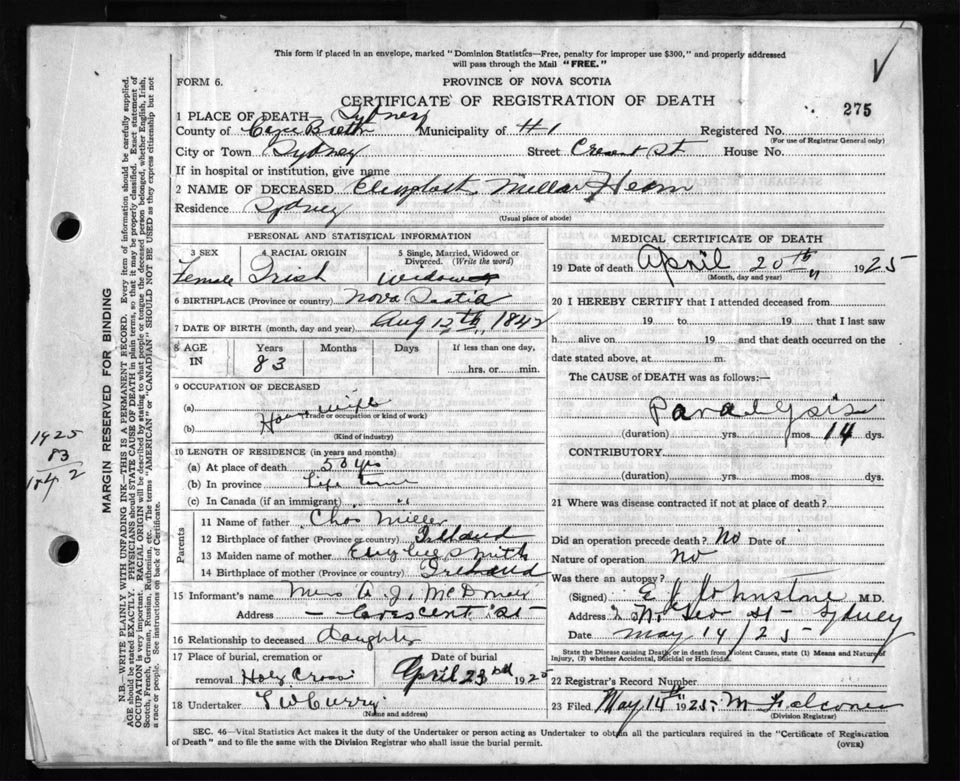 This form if placed in an envelope, marked "Dominion Statistics—Free, penalty for improper use $300," and properly addressed
will pass through the Mail "FREE."
FORM 6.
PROVINCE OF NOVA SCOTIA
CERTIFICATE OF REGISTRATION OF DEATH
275
1 PLACE OF DEATH Sydney
County of Cape Breton Municipality of #1 Registered No.
(For use of Registrar General only)
City or Town Sydney Street Cresent St House No.
If in hospital or institution, give name
2 NAME OF DECEASED Millar Hearn
Residence Sydney
(Usual place of abode)
PERSONAL AND STATISTICAL INFORMATION
3 SEX Female
4 RACIAL ORIGIN Irish
5 Single, Married, Widowed or Divorced. (Write the word) Widow
6 BIRTHPLACE (Province or country) Nova Scotia
7 DATE OF BIRTH (month, day and year) Aug 12th 1842
8 AGE IN Years 83 Months Days If less than one day, hrs. or min.
9 OCCUPATION OF DECEASED
(a) House wife
(Trade or occupation or kind of work)
(b)
(Kind of industry)
10 LENGTH OF RESIDENCE (in years and months)
(a) At place of death 50 yrs
(b) In province Life time
(c) In Canada (if an immigrant) "
Parents
11 Name of father Chas Miller
12 Birthplace of father (Province or country) Irland
13 Maiden name of mother Smith
14 Birthplace of mother (Province or country) Ireland
15 Informant's name Mrs A. J. McDonald
Address — Crescent St —
16 Relationship to deceased daughter
17 Place of burial, cremation or removal Holy Cross
Date of burial April 23rd 1925
18 Undertaker Curry
(Name and address)
MEDICAL CERTIFICATE OF DEATH
19 Date of death April 20th 1925
(Month, day and year)
20 I HEREBY CERTIFY that I attended deceased from
19 to 19 that I last saw
h alive on 19 and that death occurred on the
date stated above, at m.
The CAUSE of DEATH was as follows:—
Paralysis
(duration) yrs. mos. 14 dys.
CONTRIBUTORY
(duration) yrs. mos. dys.
21 Where was disease contracted if not at place of death?
Did an operation precede death? No Date of
Nature of operation no
Was there an autopsy?
(Signed) E J Johnstone M.D.
Address Geo St — Sydney
Date May 14/25
State the Disease causing Death, or in Deaths from Violent Causes, state (1) Means and Nature of
Injury, (2) whether Accidental, Suicidal or Homicidal.
22 Registrar's Record Number
23 Filed May 14th 1925 M Falconer
(Division Registrar)
SEC. 46—Vital Statistics Act makes it the duty of the Undertaker or person acting as Undertaker to obtain all the particulars required in the "Certificate of Registration
of Death" and to file the same with the Division Registrar who shall issue the burial permit.
(OVER)
MARGIN RESERVED FOR BINDING
N.B.—WRITE PLAINLY WITH UNFADING INK—THIS IS A PERMANENT RECORD. Every item of information should be carefully supplied.
AGE should be stated EXACTLY. PHYSICIANS should STATE CAUSE OF DEATH in plain terms, so that it may be properly classified. Exact statement of
OCCUPATION is very important. RACIAL ORIGIN will be described by stating to what people or tongue the deceased person belonged, whether English, Irish,
Scotch, French, German, Russian, Ruthenian, etc. The terms "AMERICAN" or "CANADIAN" SHOULD NOT BE USED as they express citizenship but not
a race or people. See instructions on back of Certificate.
1925
83
1842